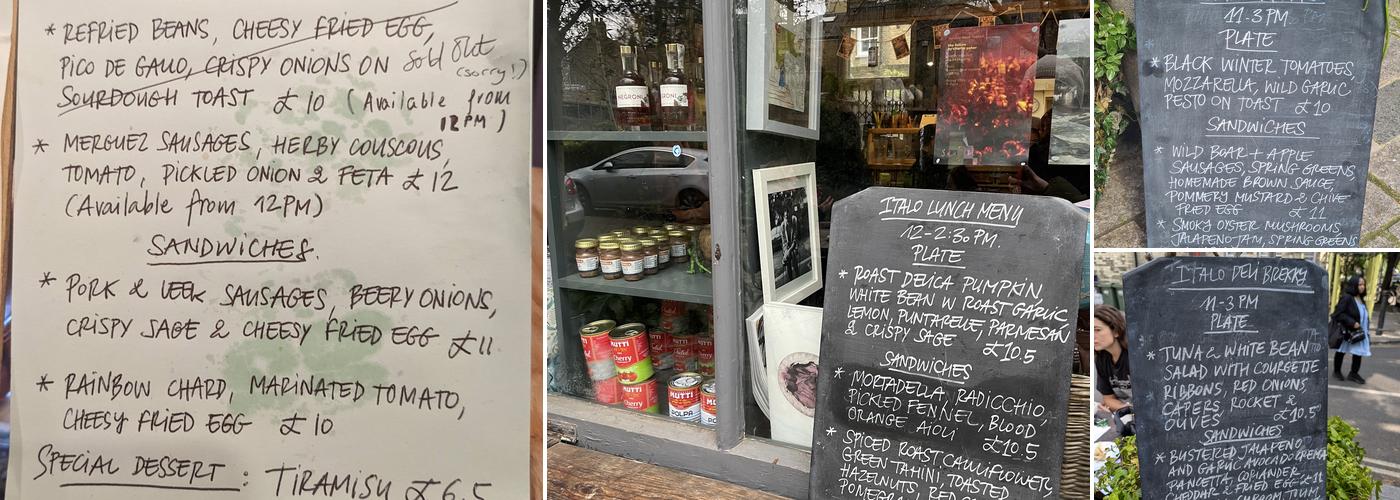 * REFRIED BEANS, CHEESY FRIED EGG,
PICO DE GALLO, CRISPY ONIONS ON Sold Out
(sorry!)
SOURDOUGH TOAST £10 (Available from
12PM)
* MERGUEZ SAUSAGES, HERBY COUSCOUS,
TOMATO, PICKLED ONION & FETA £12
(Available from 12PM)
SANDWICHES.
* PORK & LEEK SAUSAGES, BEERY ONIONS,
CRISPY SAGE & CHEESY FRIED EGG £11
* RAINBOW CHARD, MARINATED TOMATO,
CHEESY FRIED EGG £10
SPECIAL DESSERT : TIRAMISU £6.5
NEGRONI
NEGRONI
MUTTI
Cherry
MUTTI
Cherry
MUTTI
POLPA
ITALO LUNCH MENU
12-2:30 PM.
PLATE
* ROAST DELICA PUMPKIN,
WHITE BEAN W ROAST GARLIC
LEMON, PUNTARELLE, PARMESAN
& CRISPY SAGE £10.5
SANDWICHES
* MORTADELLA, RADICCHIO,
PICKLED FENNEL, BLOOD
ORANGE AIOLI £10.5
* SPICED ROAST CAULIFLOWER,
GREEN TAHINI, TOASTED
HAZELNUTS, RED
11-3PM.
PLATE
* BLACK WINTER TOMATOES,
MOZZARELLA, WILD GARLIC
PESTO ON TOAST £10
SANDWICHES
* WILD BOAR + APPLE
SAUSAGES, SPRING GREENS,
HOMEMADE BROWN SAUCE,
POMMERY MUSTARD & CHIVE
FRIED EGG £11
* SMOKY OYSTER MUSHROOMS,
JALAPENO JAM, SPRING GREENS
ITALO DELI BREKKY
11-3 PM
PLATE
* TUNA & WHITE BEAN
SALAD WITH COURGETTE
RIBBONS, RED ONIONS
CAPERS, ROCKET &
OLIVES £10.5
SANDWICHES
* BUSTERED JALAPENO
AND GARLIC AVOCADO CREMA
PANCETTA, CORIANDER
CHEDDAR & FRIED EGG £11